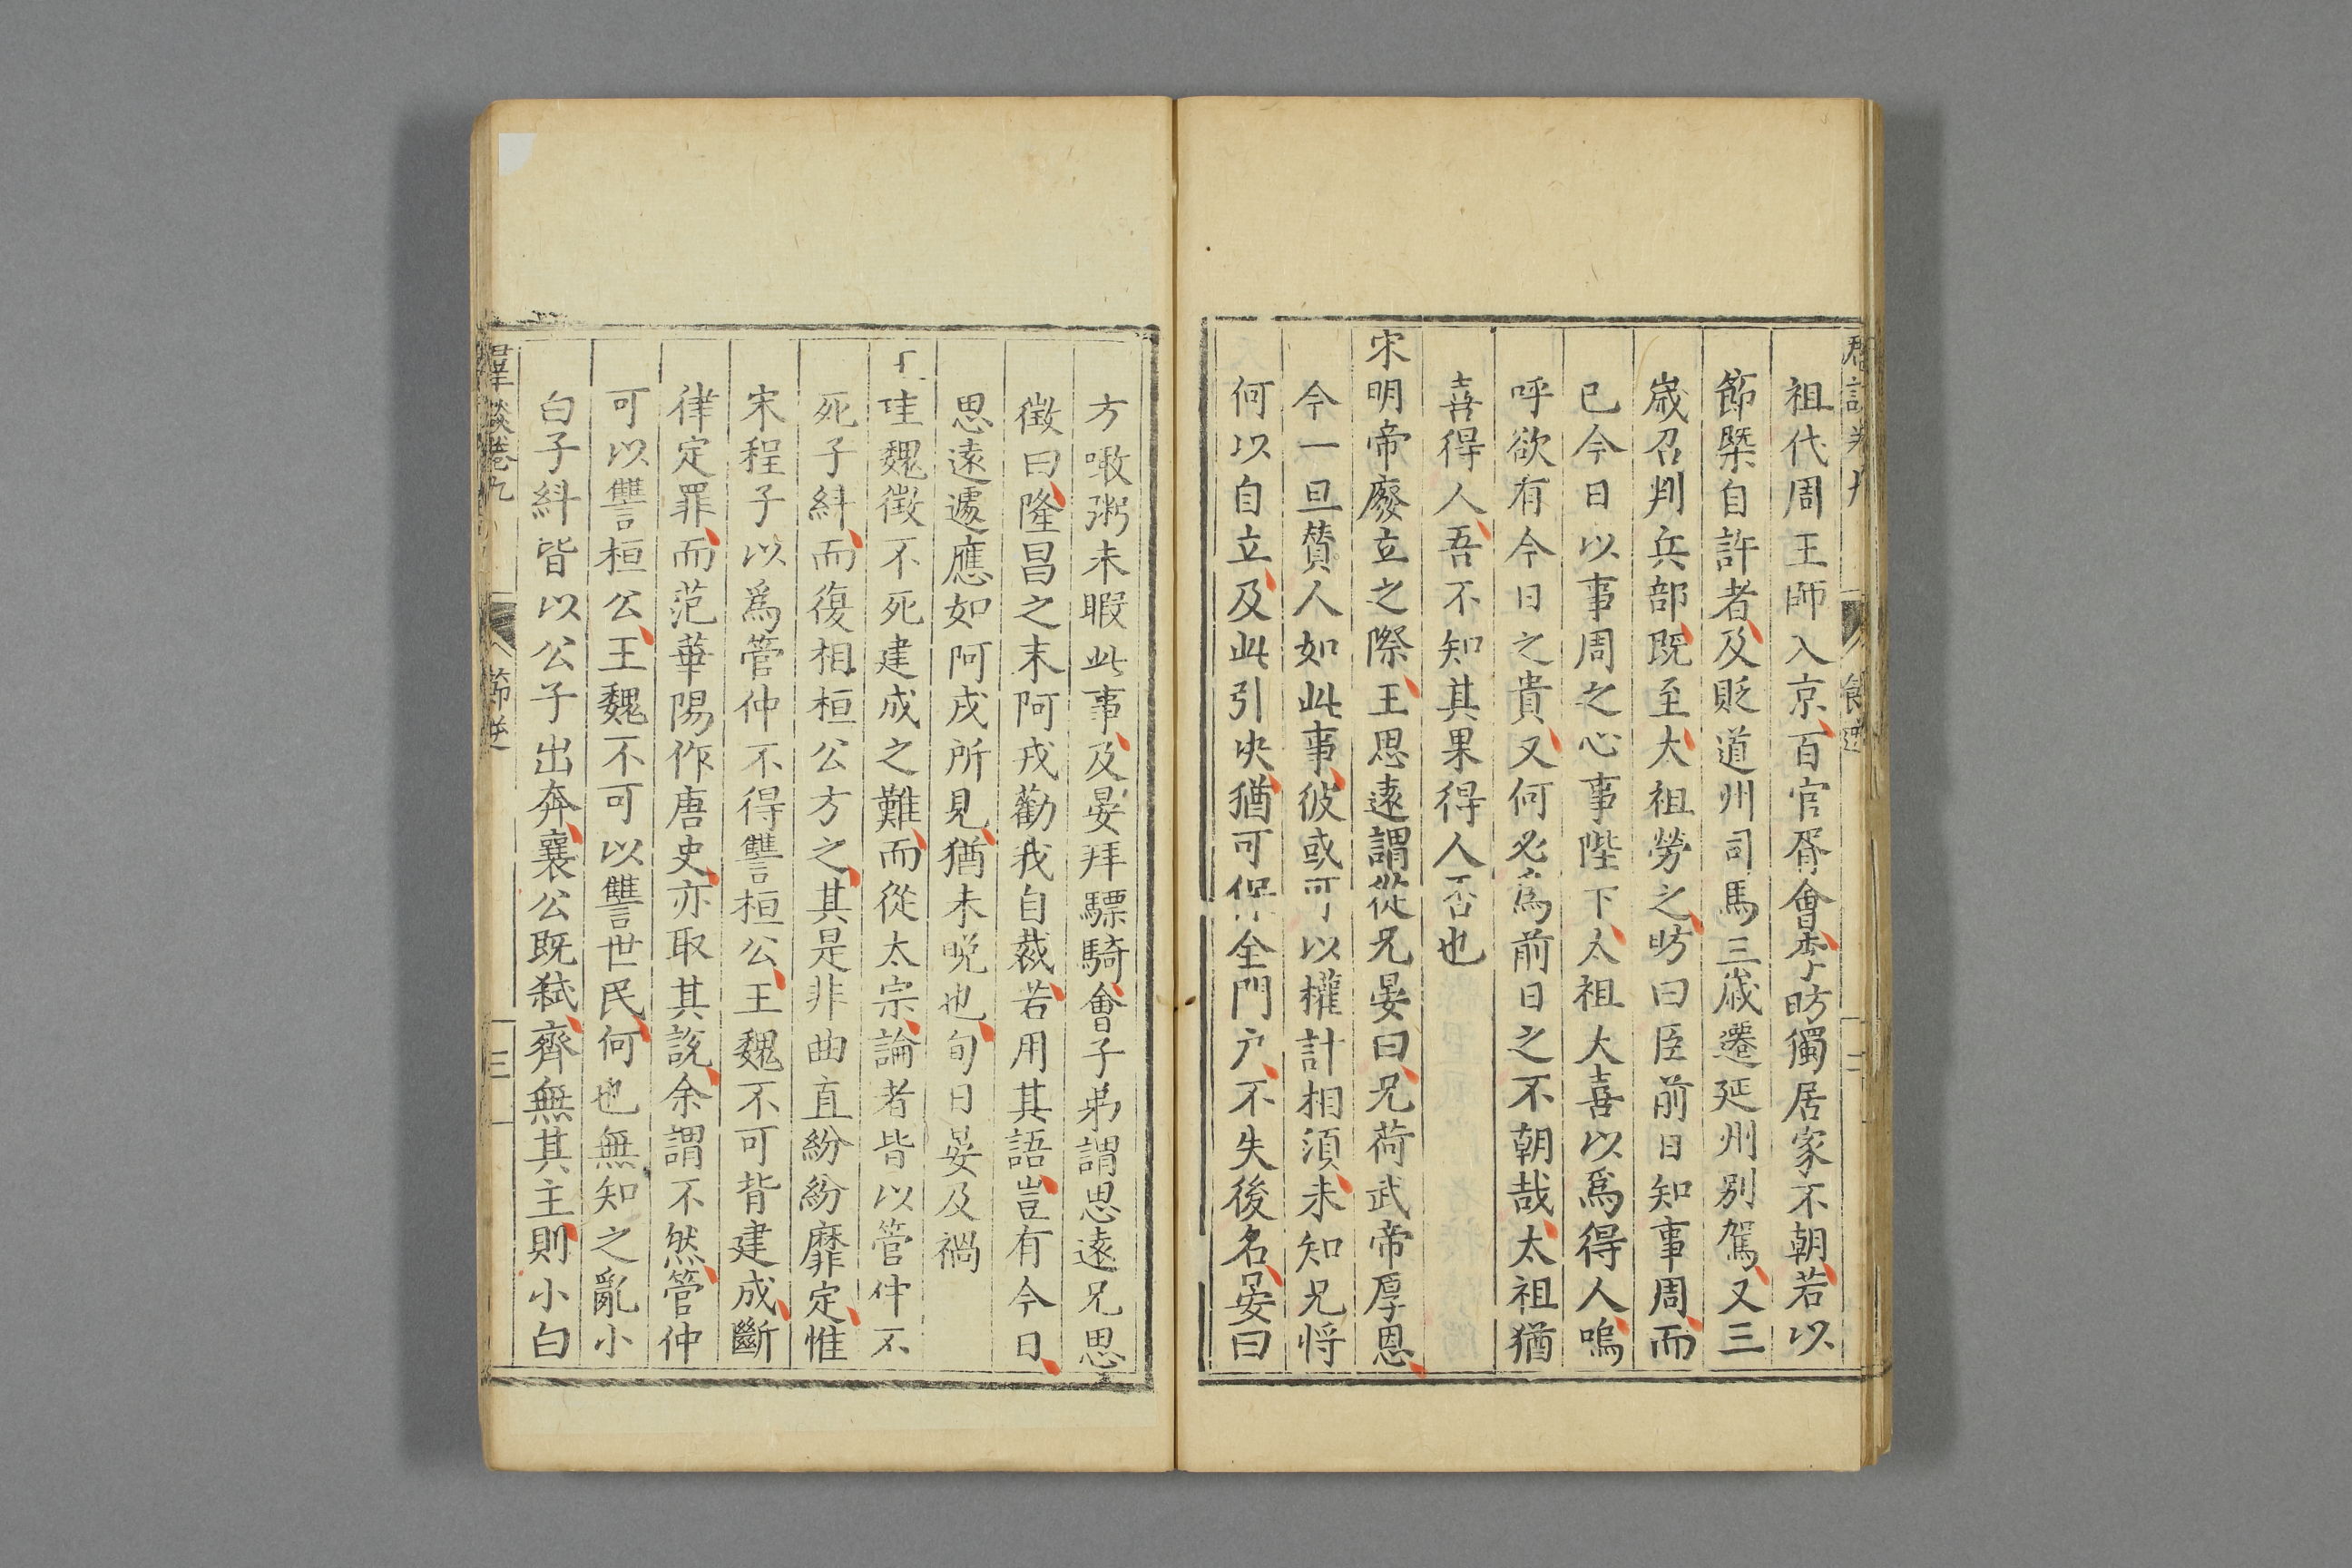 祖代周王師入京百官胥會李昉獨居家不朝若以
節槩自許者及貶道州司馬三歲遷延州別駕又三
歲召判兵部既至大祖勞之昉曰臣前日知事周而
已今日以事周之心事陛下太祖大喜以爲得人嗚
呼欲有今日之貴又何必爲前日之不朝哉太祖猶
喜得人吾不知其果得人否也
宋明帝廢立之際王思遠謂從兄晏曰兄荷武帝厚恩
今一旦贊人如此事彼或可以權計相須未知兄将
何以自立及此引决猶可保全門户不失後名晏曰
方噉粥未暇此事及晏拜驃騎會子弟謂思遠兄思
徴曰隆昌之末阿戎勸我自裁若用其語豈有今日
思遠遽應如阿戎所見猶未晚也旬日晏及禍
珪魏徴不死建成之難而從太宗論者皆以管仲不
死子糾而復相桓公方之其是非曲直紛紛靡定惟
宋程子以爲管仲不得讐桓公王魏不可背建成斷
律定罪而范華陽作唐史亦取其說余謂不然管仲
可以讐桓公王魏不可以讐世民何也無知之亂小
白子糾皆以公子出奔襄公既弑齊無其主則小白
羣談卷九 節逆 三